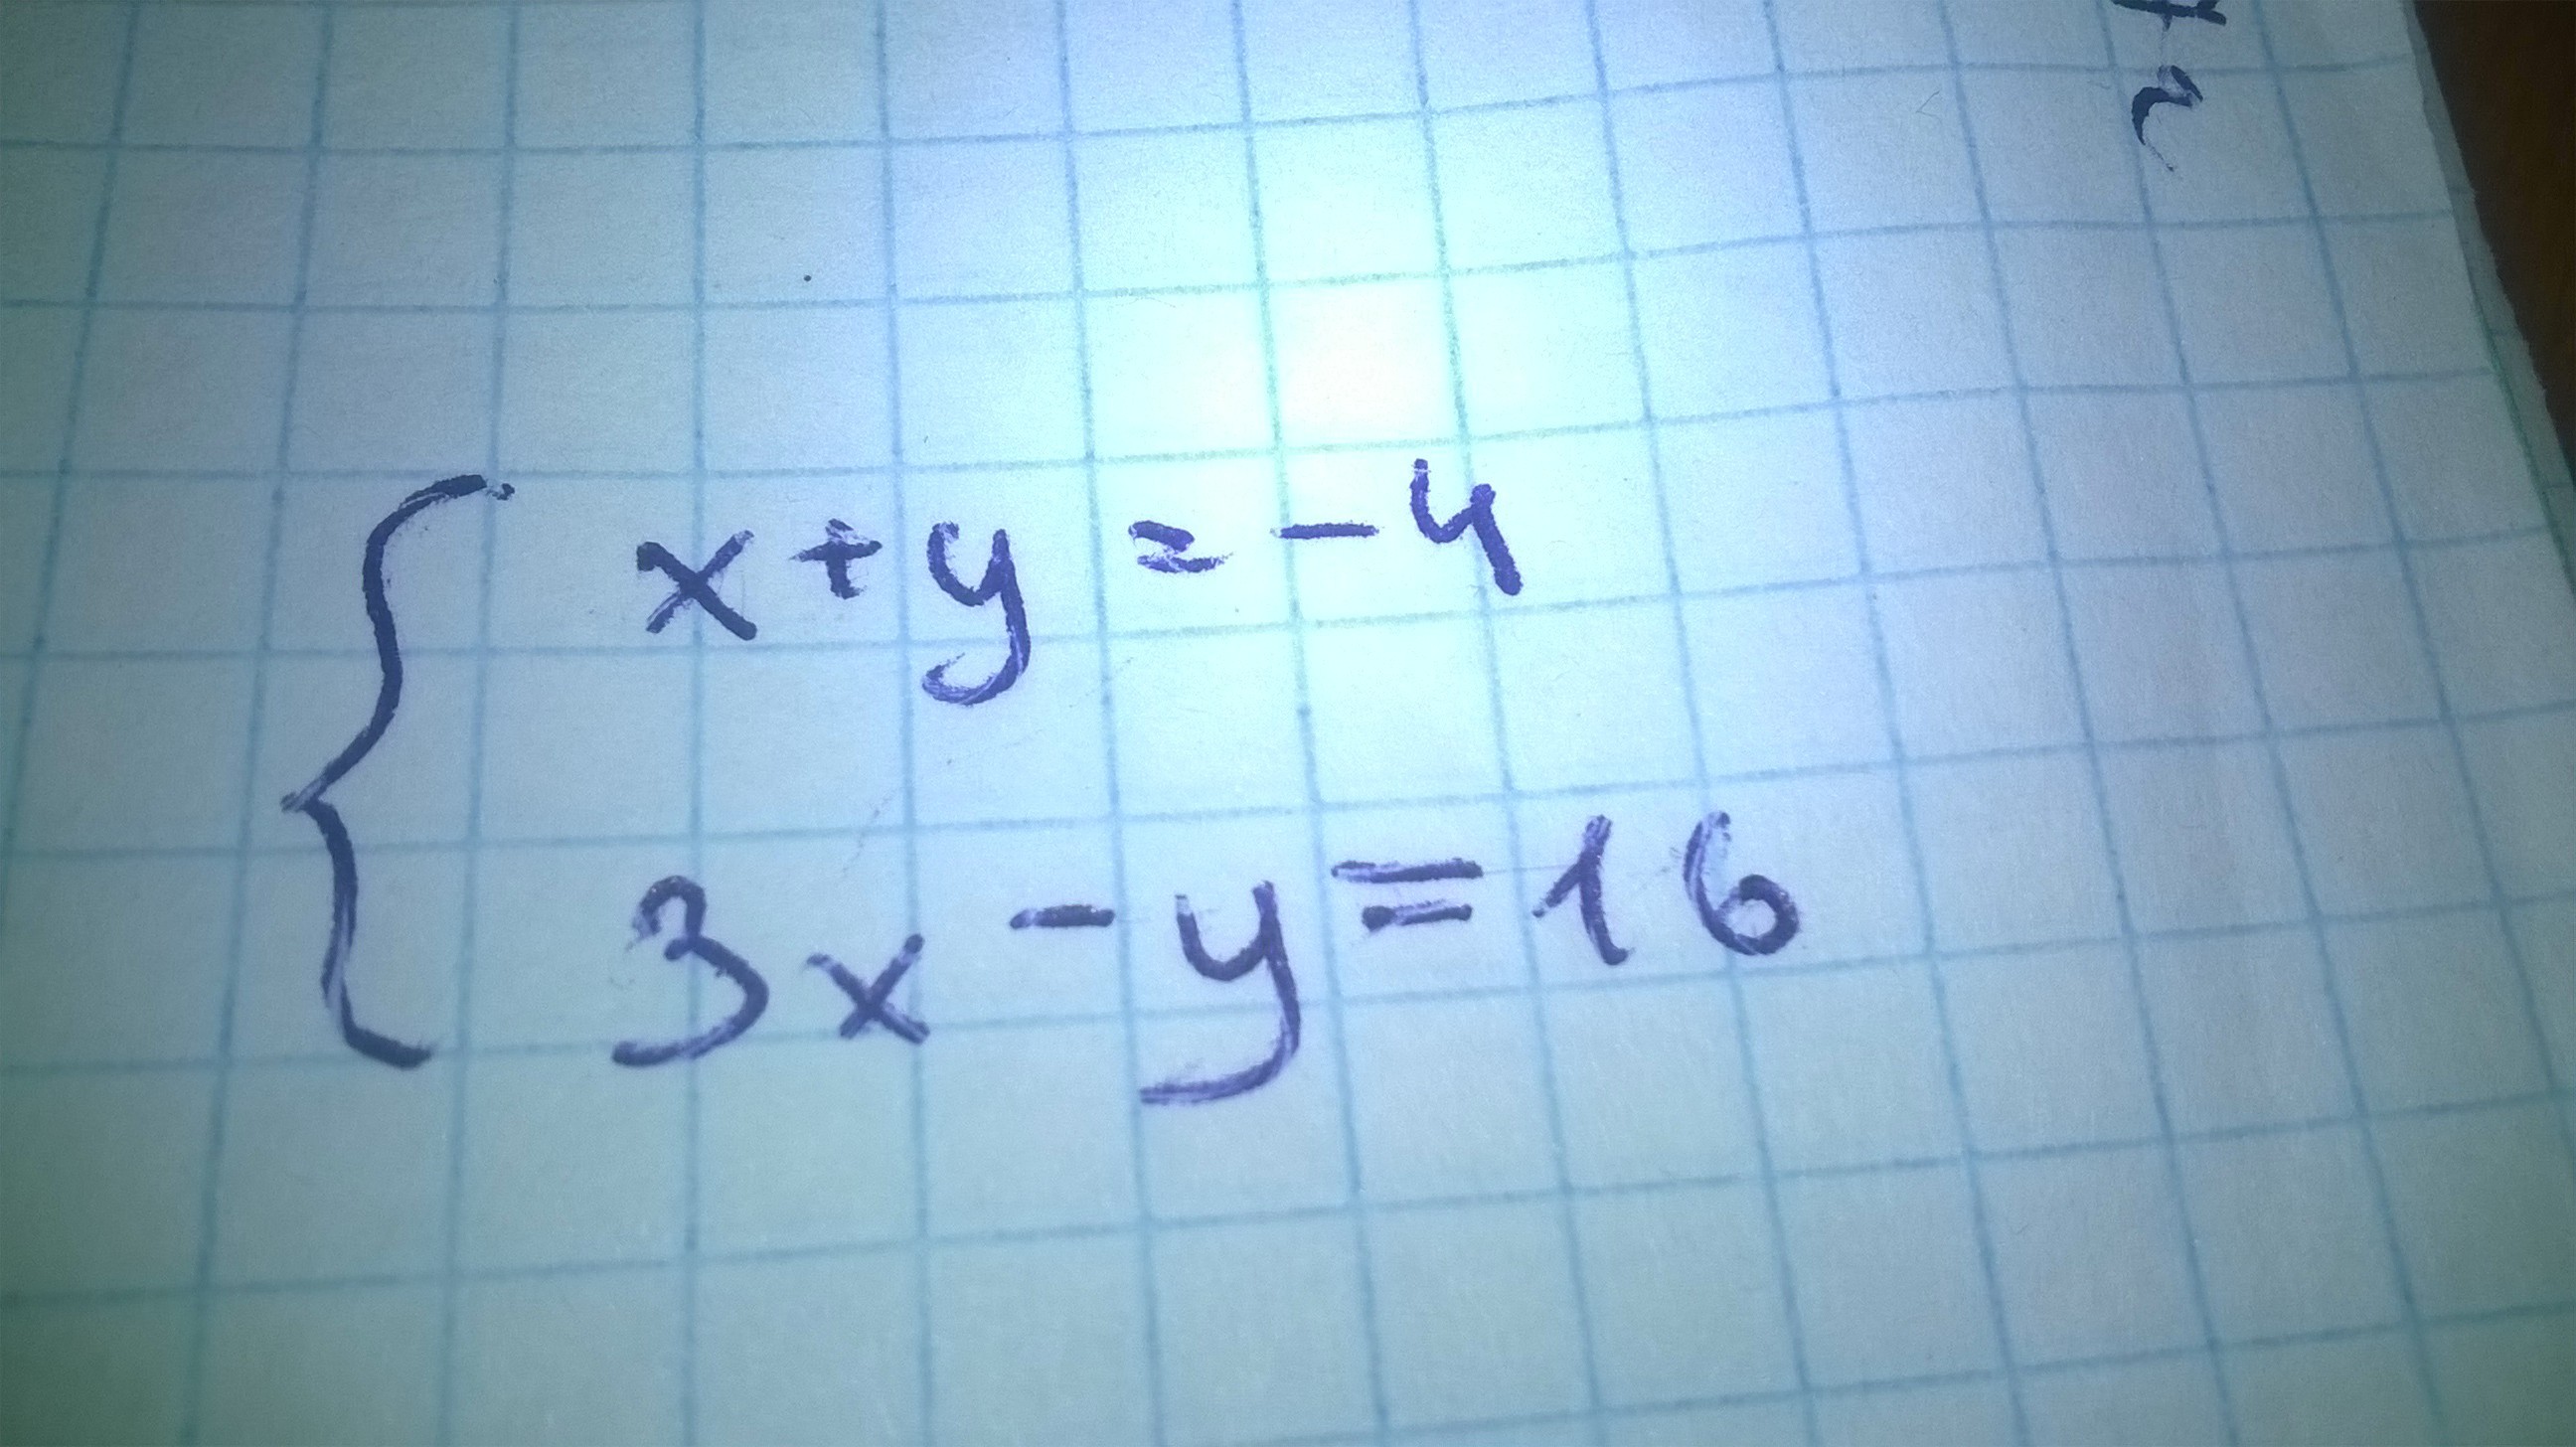 x+y=-4
3x-y=16